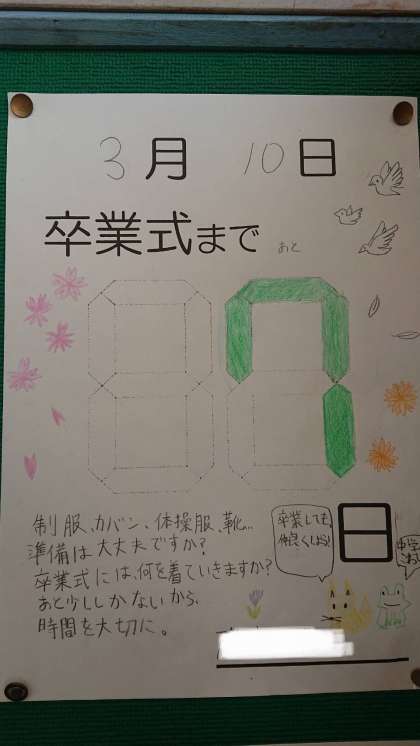 3月 10日
卒業式まで あと
7
日
制服、カバン、体操服、靴…
準備は大丈夫ですか?
卒業式には、何を着ていきますか?
あと少ししかないから、
時間を大切に。
卒業しても、
仲良くしよう!
中学